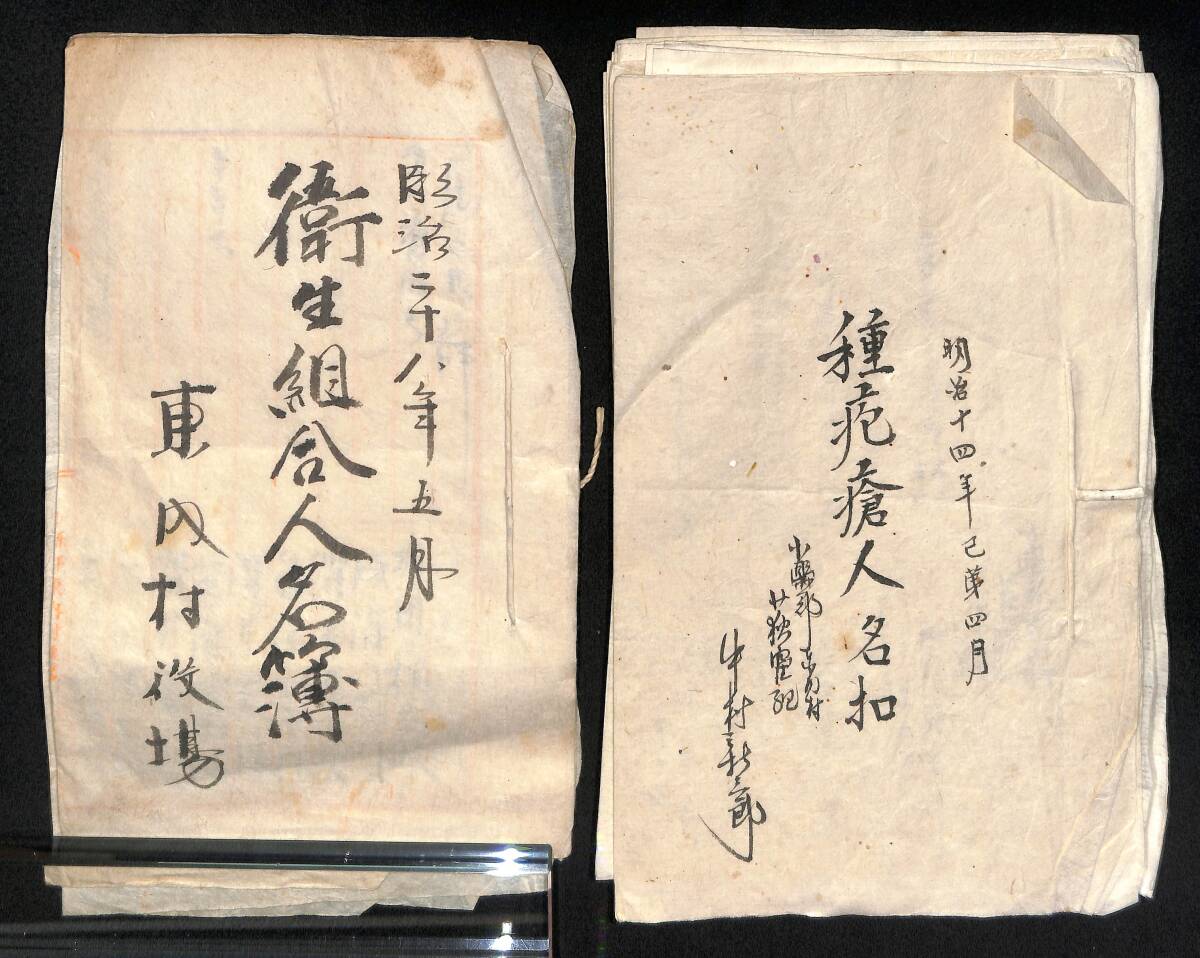 明治二十八年五月
衛生組合人名簿
東内村役場
明治十四年巳第四月
種疱瘡人名扣
小縣郡東内村
中村